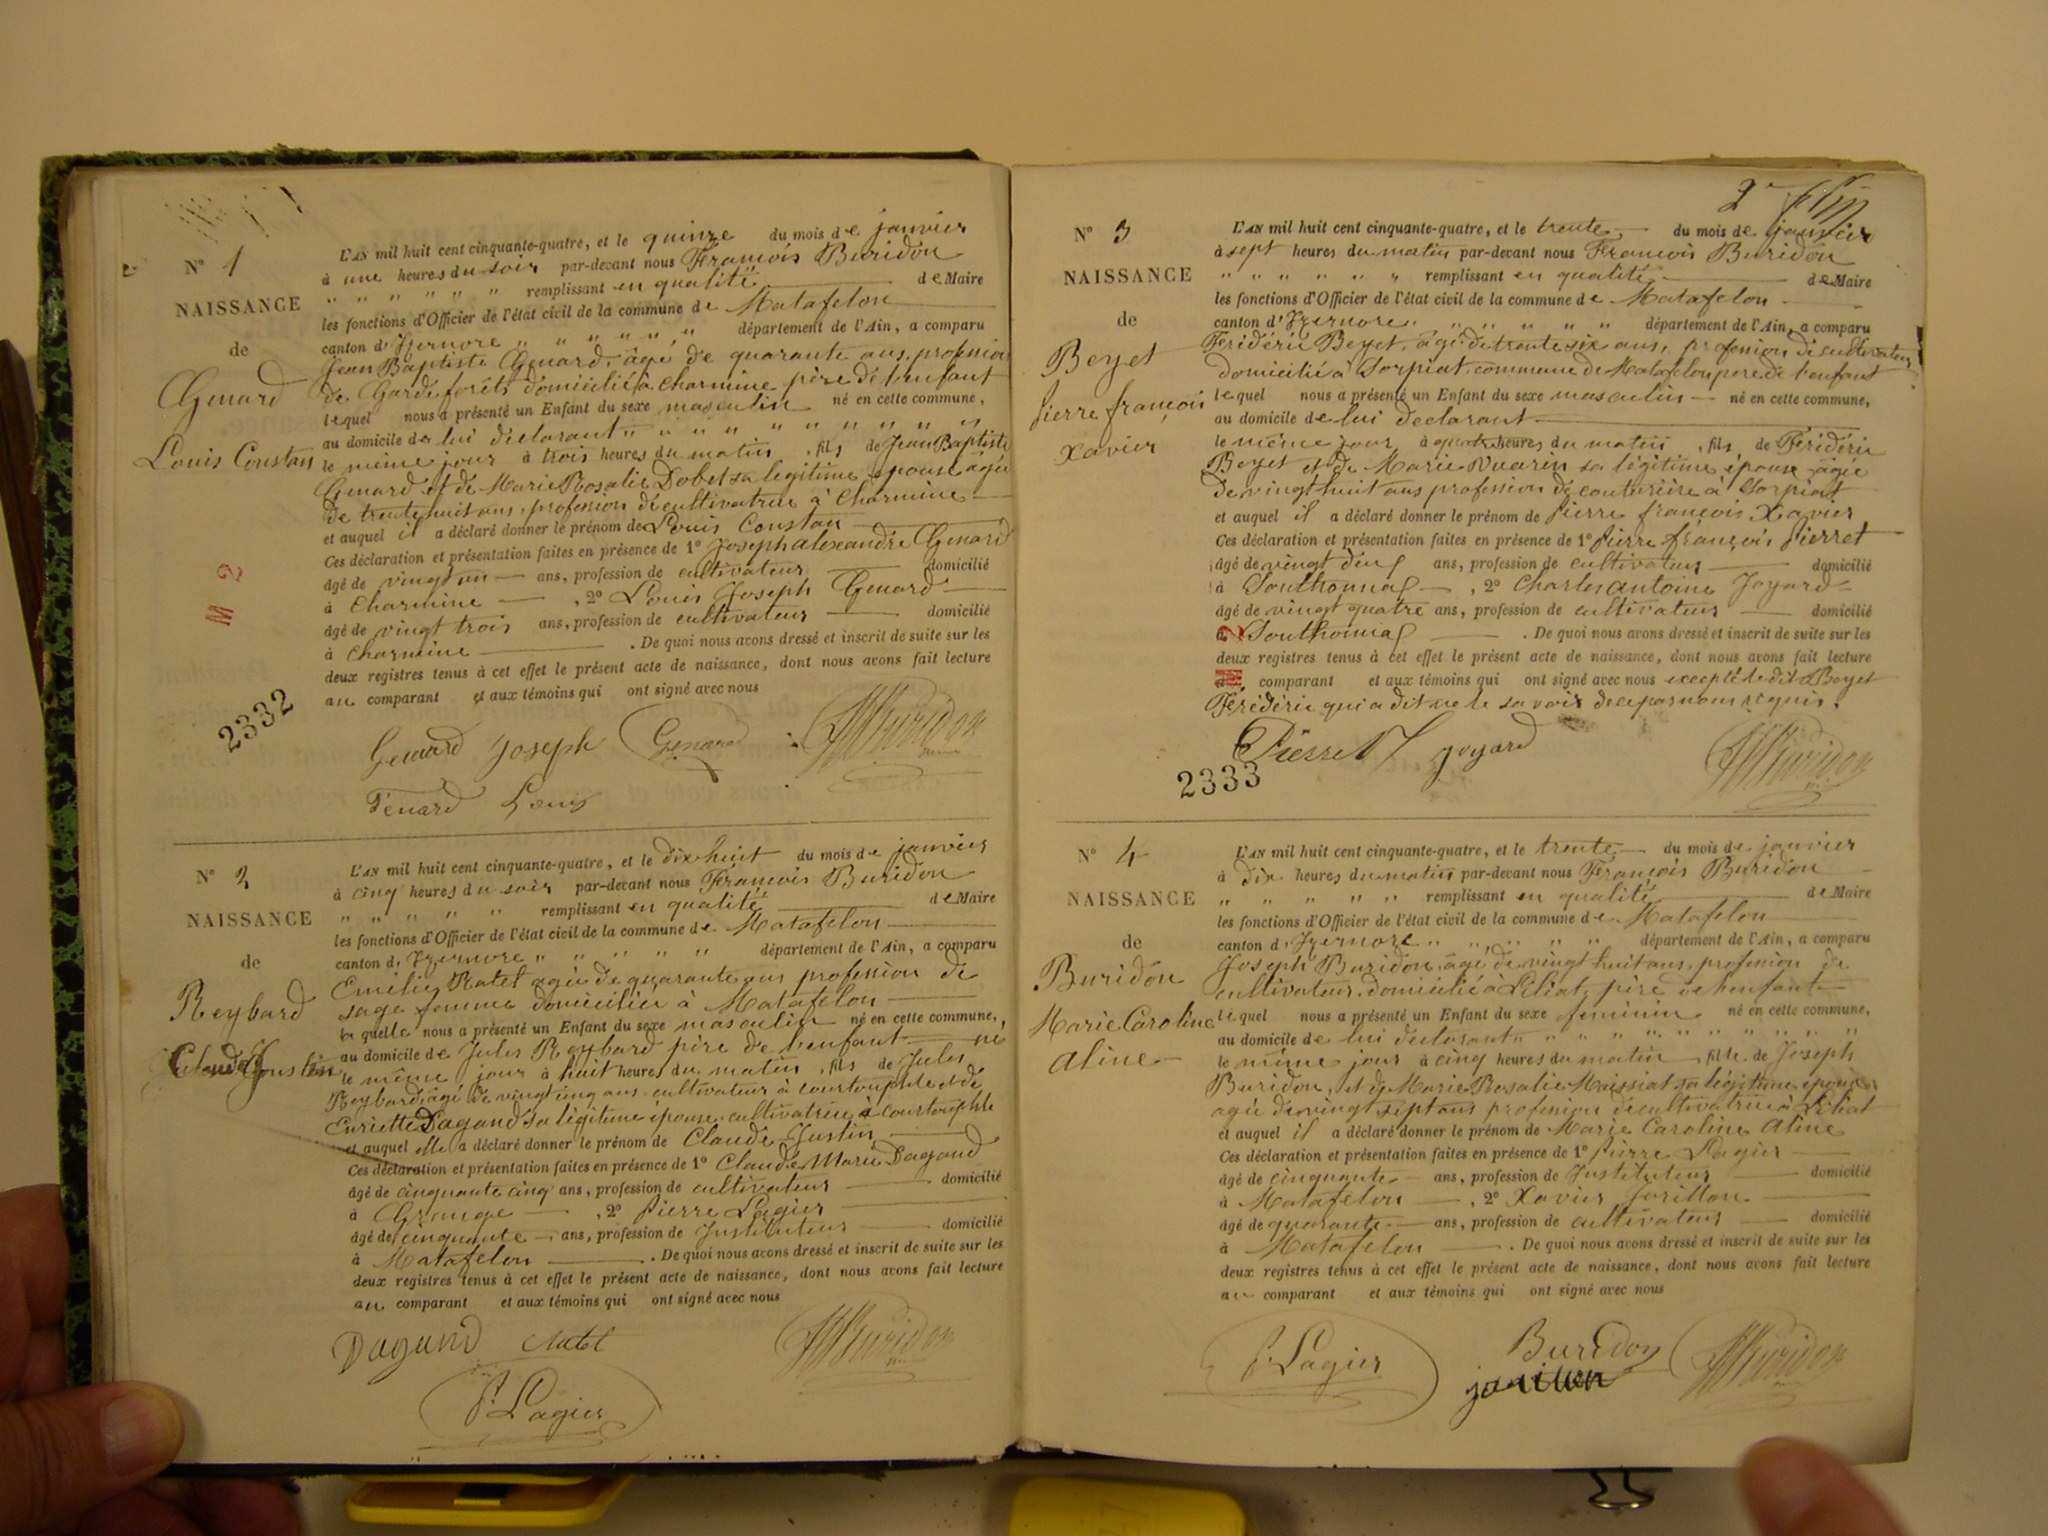 N° 1
NAISSANCE
de
Genard
Louis Constan
L'AN mil huit cent cinquante-quatre, et le quinze du mois de janvier
à une heures du soir par-devant nous François Buridon
" " " " " " remplissant en qualité de Maire
les fonctions d'Officier de l'état civil de la commune de Matafelon
canton d'Izernore " " " " " " département de l'Ain, a comparu
Jean Baptiste Genard, âgé de quarante ans, profession
de Garde forêts domicilié à Charmine père de l'enfant
lequel nous a présenté un Enfant du sexe masculin né en cette commune,
au domicile de lui déclarant " " " " " " " " " "
le même jour à trois heures du matin, fils de Jean Baptiste
Genard et de Marie Rosalie Dobet sa légitime épouse âgée
de trente huit ans, profession de cultivatrice à Charmine
et auquel il a déclaré donner le prénom de Louis Constan
Ces déclaration et présentation faites en présence de 1° Joseph alexandre Genard
âgé de vingt un ans, profession de cultivateur domicilié
à Charmine, 2° Louis Joseph Genard
âgé de vingt trois ans, profession de cultivateur domicilié
à Charmine. De quoi nous avons dressé et inscrit de suite sur les
deux registres tenus à cet effet le présent acte de naissance, dont nous avons fait lecture
au comparant et aux témoins qui ont signé avec nous
M 2
2332
Genard Joseph Genard Buridon
Genard Louis
N° 2
NAISSANCE
de
Reybard
Claude Justin
L'AN mil huit cent cinquante-quatre, et le dix huit du mois de janvier
à cinq heures du soir par-devant nous François Buridon
" " " " " remplissant en qualité de Maire
les fonctions d'Officier de l'état civil de la commune de Matafelon
canton d'Izernore " " " " " " département de l'Ain, a comparu
Emilie Ratel agée de quarante ans profession de
sage femme domiciliée à Matafelon
la quelle nous a présenté un Enfant du sexe masculin né en cette commune,
au domicile de Jules Reybard père de l'enfant né
le même jour à huit heures du matin, fils de Jules
Reybard, âgé de vingt cinq ans cultivateur à Courtouphle et de
Enriette Dagand sa légitime épouse cultivatrice à Courtouphle
et auquel elle a déclaré donner le prénom de Claude Justin
Ces déclaration et présentation faites en présence de 1° Claude Marie Dagand
âgé de cinquante cinq ans, profession de cultivateur domicilié
à Grange, 2° Pierre Lagier
âgé de cinquante ans, profession de Instituteur domicilié
à Matafelon. De quoi nous avons dressé et inscrit de suite sur les
deux registres tenus à cet effet le présent acte de naissance, dont nous avons fait lecture
au comparant et aux témoins qui ont signé avec nous
Dagand Ratel Buridon
P. Lagier
2
N° 3
NAISSANCE
de
Beyet
Pierre françois
Xavier
L'AN mil huit cent cinquante-quatre, et le trente du mois de janvier
à sept heures du matin par-devant nous François Buridon
" " " " " " remplissant en qualité de Maire
les fonctions d'Officier de l'état civil de la commune de Matafelon
canton d'Izernore " " " " " département de l'Ain, a comparu
Frédéric Beyet, âgé de trente six ans, profession de cultivateur
domicilié à Corpiat, commune de Matafelon père de l'enfant
lequel nous a présenté un Enfant du sexe masculin né en cette commune,
au domicile de lui déclarant
le même jour, à quatre heures du matin, fils de Frédéric
Beyet et de Marie Nuarin sa légitime épouse âgée
de vingt huit ans profession de couturière à Corpiat
et auquel il a déclaré donner le prénom de Pierre françois Xavier
Ces déclaration et présentation faites en présence de 1° Pierre françois Pierret
âgé de vingt cinq ans, profession de cultivateur domicilié
à Southonnaf, 2° Charles antoine Joyard
âgé de vingt quatre ans, profession de cultivateur domicilié
à Southonnaf. De quoi nous avons dressé et inscrit de suite sur les
deux registres tenus à cet effet le présent acte de naissance, dont nous avons fait lecture
comparant et aux témoins qui ont signé avec nous excepté le dit Beyet
Frédéric qui a dit ne le savoir de ce par nous requis.
M 2
Pierret Joyard Buridon
2333
N° 4
NAISSANCE
de
Buridon
Marie Caroline
Aline
L'AN mil huit cent cinquante-quatre, et le trente du mois de janvier
à dix heures du matin par-devant nous François Buridon
" " " " " " remplissant en qualité de Maire
les fonctions d'Officier de l'état civil de la commune de Matafelon
canton d'Izernore " " " " " département de l'Ain, a comparu
Joseph Buridon, âgé de vingt huit ans, profession de
cultivateur, domicilié à Liliat, père de l'enfant
lequel nous a présenté un Enfant du sexe feminin né en cette commune,
au domicile de lui déclarant " " " " " " " " "
le même jour à cinq heures du matin, fille de Joseph
Buridon, et de Marie Rosalie Maissiat sa légitime épouse
agée de vingt sept ans profession de cultivatrice à Liliat
et auquel il a déclaré donner le prénom de Marie Caroline Aline
Ces déclaration et présentation faites en présence de 1° Pierre Lagier
âgé de cinquante ans, profession de Instituteur domicilié
à Matafelon, 2° Xavier Jorillon
âgé de quarante ans, profession de cultivateur domicilié
à Matafelon. De quoi nous avons dressé et inscrit de suite sur les
deux registres tenus à cet effet le présent acte de naissance, dont nous avons fait lecture
au comparant et aux témoins qui ont signé avec nous
P. Lagier Buridon Buridon
jorillon